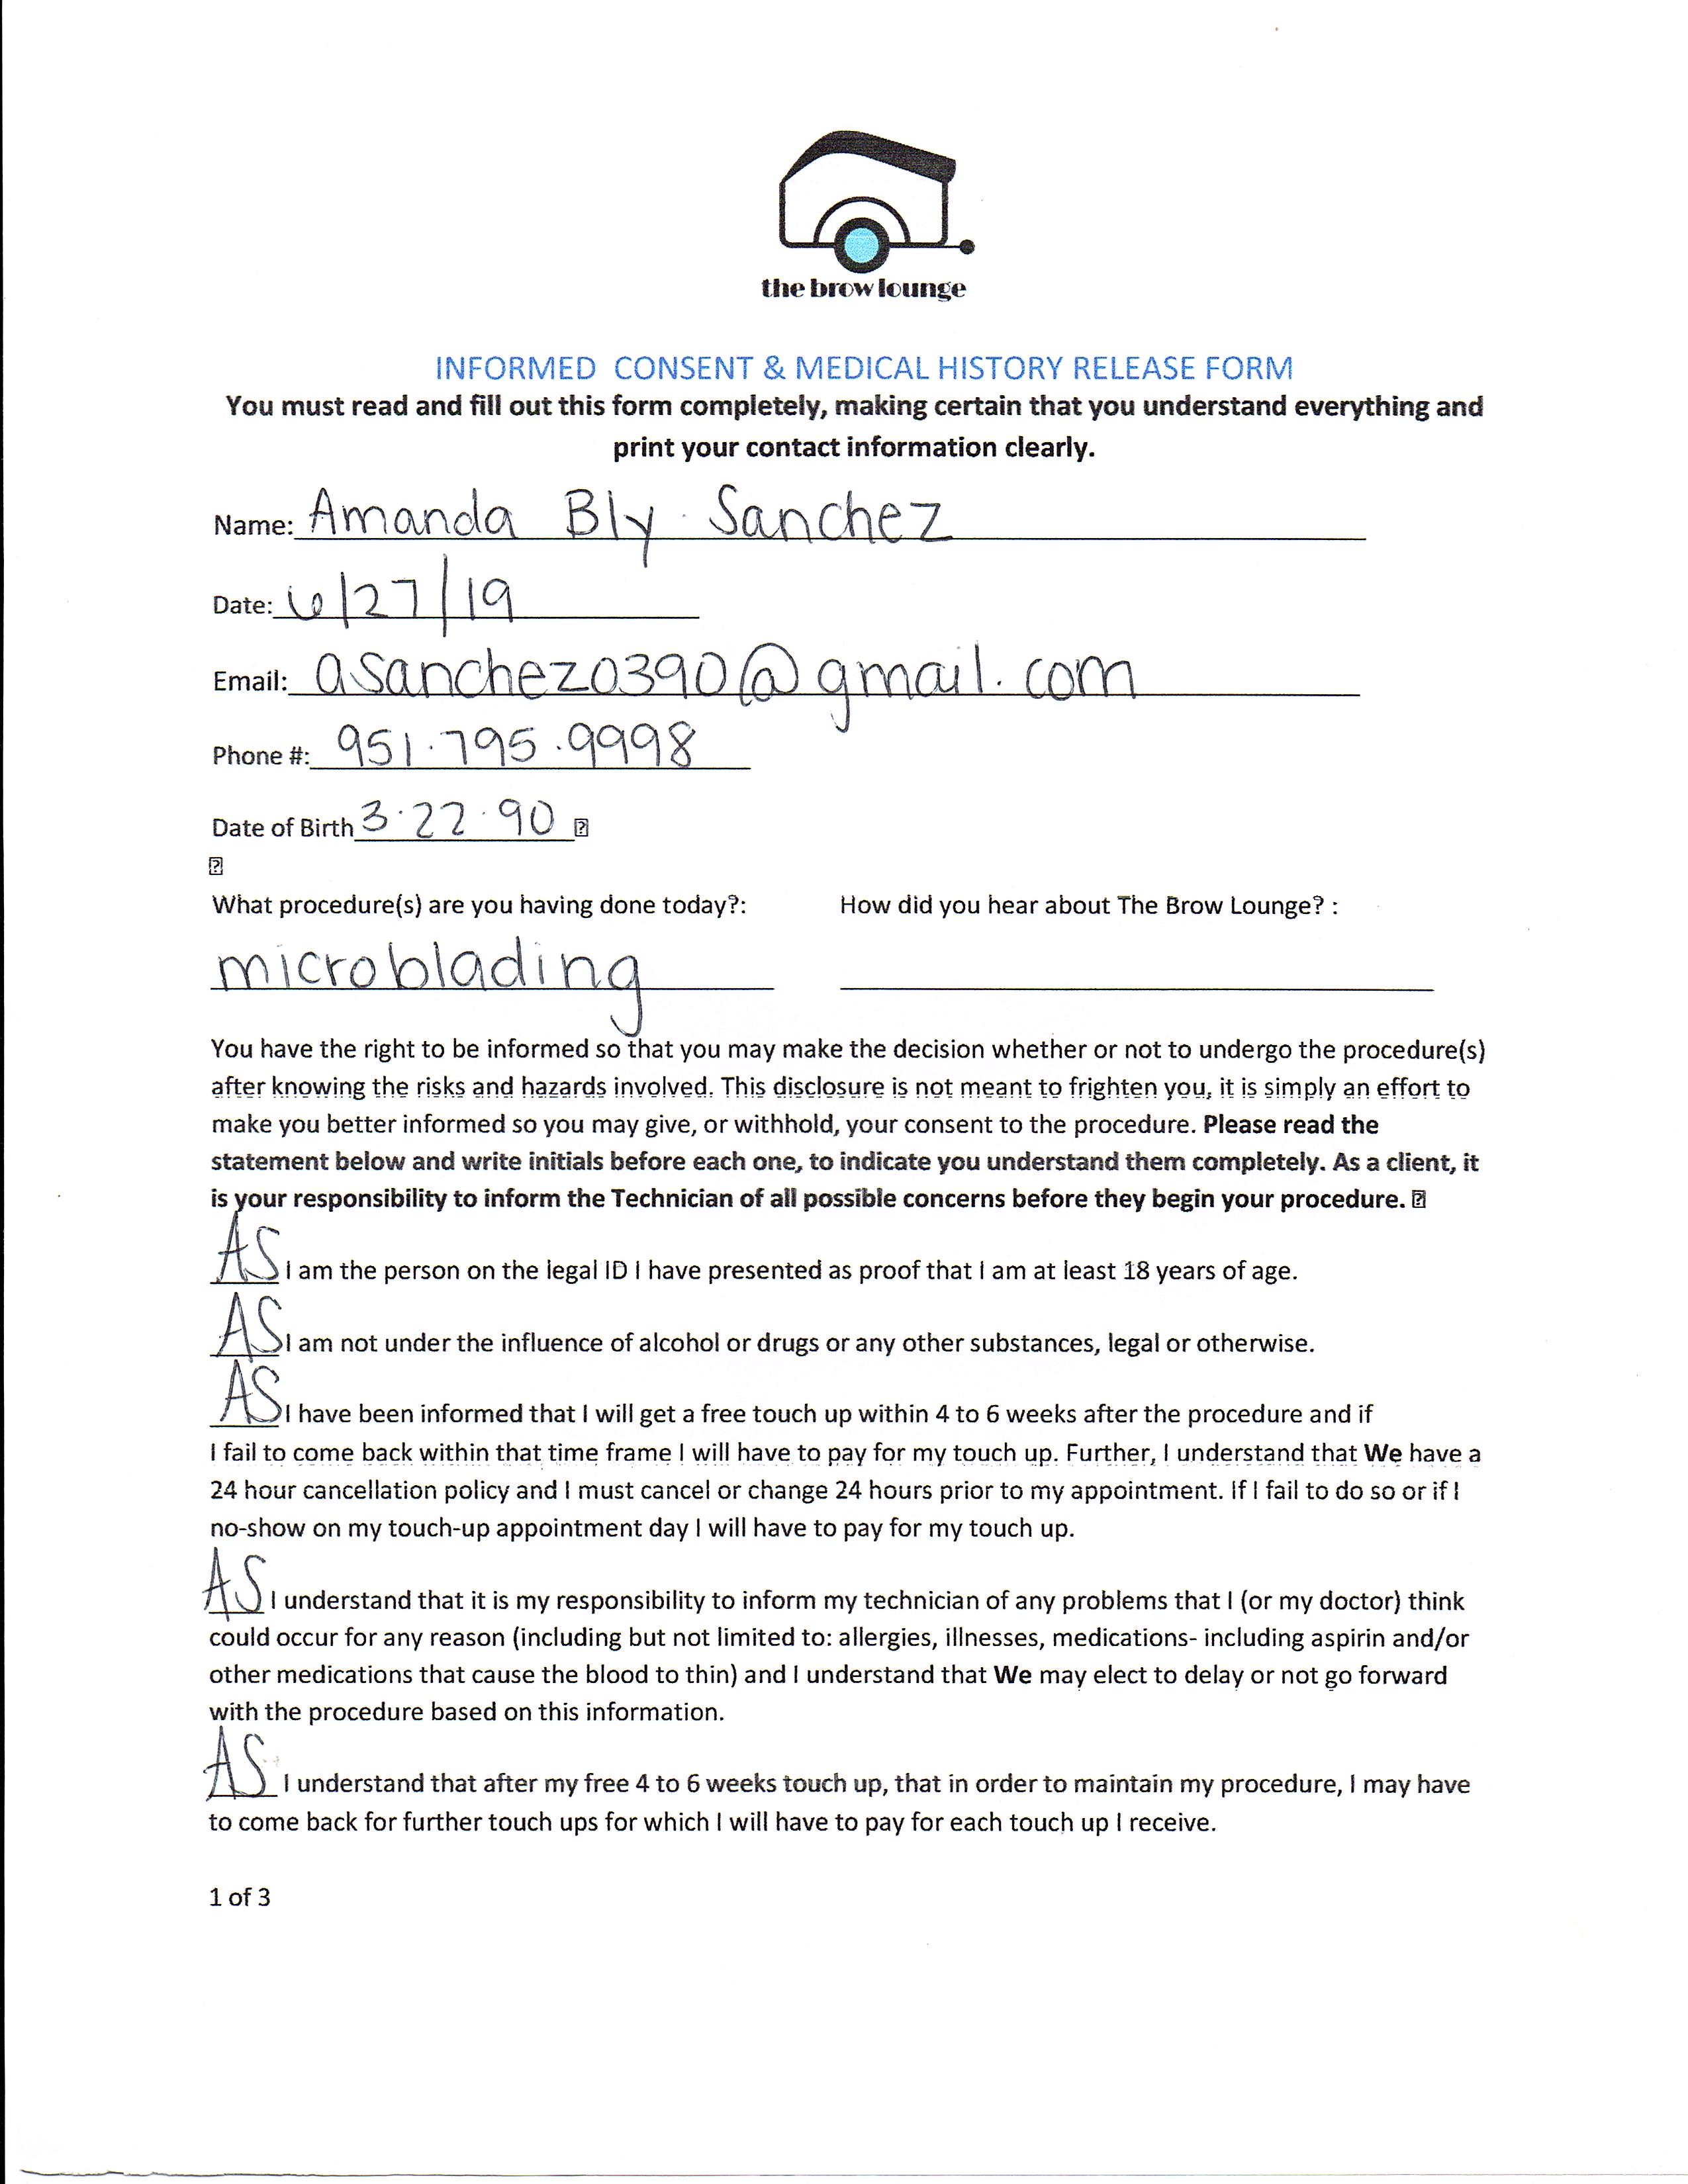 the brow lounge
INFORMED CONSENT & MEDICAL HISTORY RELEASE FORM
You must read and fill out this form completely, making certain that you understand everything and
print your contact information clearly.
Name: Amanda Bly Sanchez
Date: 6/27/19
Email: asanchez0390@gmail.com
Phone #: 951.795.9998
Date of Birth 3.22.90
What procedure(s) are you having done today?: How did you hear about The Brow Lounge? :
microblading
You have the right to be informed so that you may make the decision whether or not to undergo the procedure(s)
after knowing the risks and hazards involved. This disclosure is not meant to frighten you, it is simply an effort to
make you better informed so you may give, or withhold, your consent to the procedure. Please read the
statement below and write initials before each one, to indicate you understand them completely. As a client, it
is your responsibility to inform the Technician of all possible concerns before they begin your procedure.
AS I am the person on the legal ID I have presented as proof that I am at least 18 years of age.
AS I am not under the influence of alcohol or drugs or any other substances, legal or otherwise.
AS I have been informed that I will get a free touch up within 4 to 6 weeks after the procedure and if
I fail to come back within that time frame I will have to pay for my touch up. Further, I understand that We have a
24 hour cancellation policy and I must cancel or change 24 hours prior to my appointment. If I fail to do so or if I
no-show on my touch-up appointment day I will have to pay for my touch up.
AS I understand that it is my responsibility to inform my technician of any problems that I (or my doctor) think
could occur for any reason (including but not limited to: allergies, illnesses, medications- including aspirin and/or
other medications that cause the blood to thin) and I understand that We may elect to delay or not go forward
with the procedure based on this information.
AS I understand that after my free 4 to 6 weeks touch up, that in order to maintain my procedure, I may have
to come back for further touch ups for which I will have to pay for each touch up I receive.
1 of 3